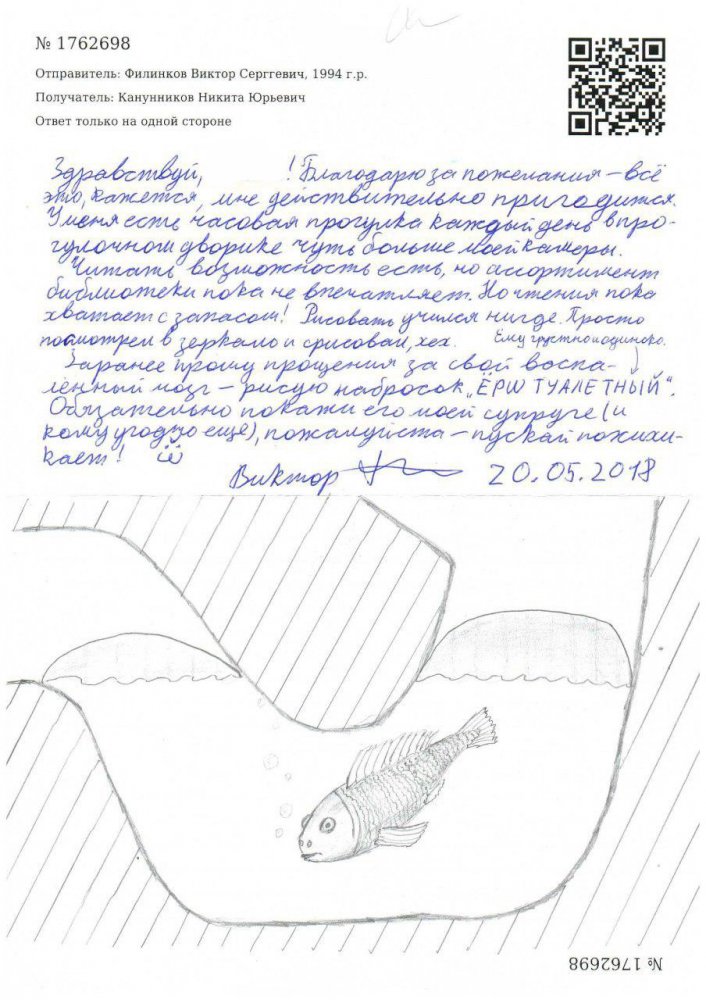 № 1762698
Отправитель: Филинков Виктор Серггевич, 1994 г.р.
Получатель: Канунников Никита Юрьевич
Ответ только на одной стороне
Здравствуй, ! Благодарю за пожелания – всё
это, кажется, мне действительно пригодится.
У меня есть часовая прогулка каждый день в про-
гулочном дворике чуть больше моей камеры.
Читать возможность есть, но ассортимент
библиотеки пока не впечатляет. Но чтения пока
хватает с запасом! Рисовать учился нигде. Просто
посмотрел в зеркало и срисовал, хех. Ему грустно и одиноко.
Заранее прошу прощения за свой воспа-
лённый мозг – рисую набросок „ЁРШ ТУАЛЕТНЫЙ“.
Обязательно покажи его моей супруге (и
кому угодно ещё), пожалуйста – пускай похихи-
кает!
Виктор 20.05.2018
№ 1762698